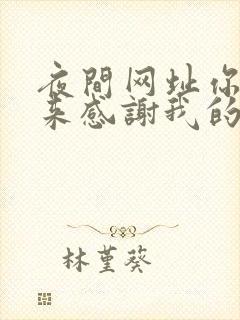 夜間网址你
来感謝我的
林堇葵